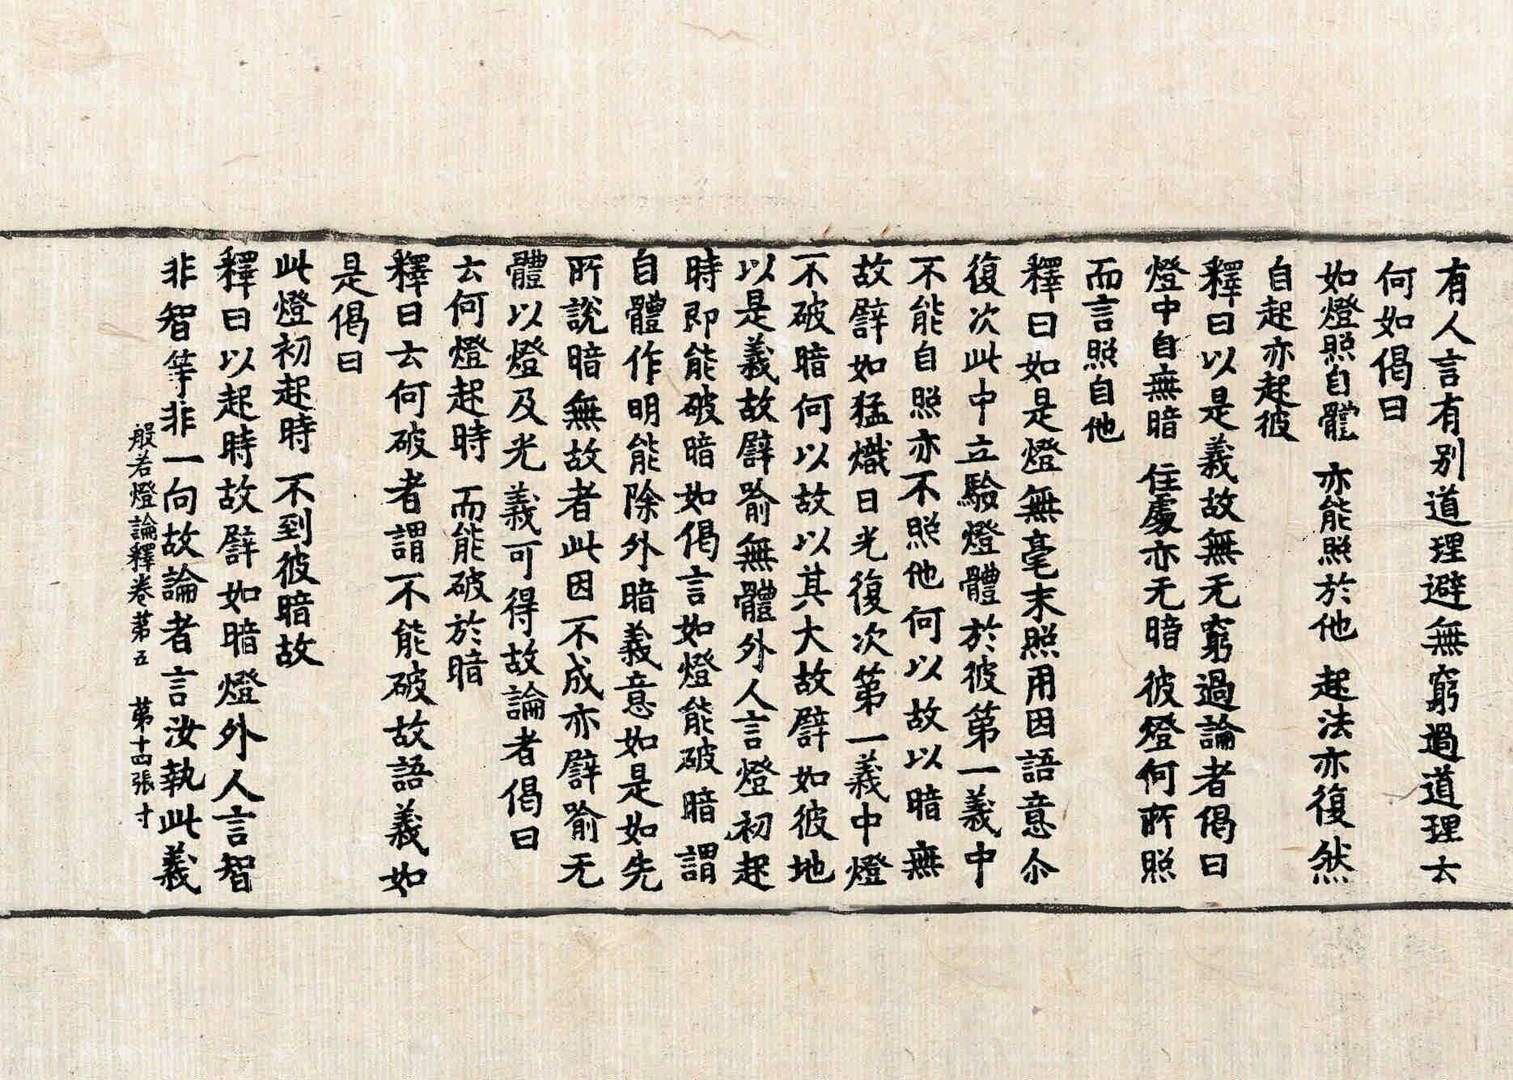 有人言有別道理避無窮過道理去
何如偈曰
如燈照自體 亦能照於他 起法亦復然
自起亦起彼
釋曰以是義故無无窮過論者偈曰
燈中自無暗 住處亦无暗 彼燈何所照
而言照自他
釋曰如是燈無毫末照用因語意尒
復次此中立驗燈體於彼第一義中
不能自照亦不照他何以故以暗無
故譬如猛熾日光復次第一義中燈
不破暗何以故以其大故譬如彼地
以是義故譬喻無體外人言燈初起
時即能破暗如偈言如燈能破暗謂
自體作明能除外暗義意如是如先
所說暗無故者此因不成亦譬喻无
體以燈及光義可得故論者偈曰
云何燈起時 而能破於暗
釋曰云何破者謂不能破故語義如
是偈曰
此燈初起時 不到彼暗故
釋曰以起時故譬如暗燈外人言智
非智等非一向故論者言汝執此義
般若燈論釋卷第五 第十四張 寸